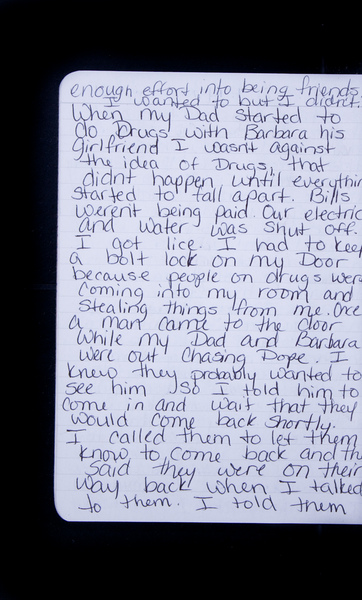 enough effort into being friends.
I wanted to but I didn't.
When my Dad started to
do Drugs with Barbara his
girlfriend I wasnt against
the idea of Drugs, that
didnt happen until everythin
started to fall apart. Bills
werent being paid. Our electric
and water was shut off.
I got lice. I had to keep
a bolt lock on my Door
because people on drugs were
coming into my room and
stealing things from me. Once
a man came to the door
while my Dad and Barbara
were out chasing Dope. I
knew they probably wanted to
see him so I told him to
come in and wait that they
would come back shortly.
I called them to let them
know to come back and th
said they were on their
way back when I talked
to them. I told them